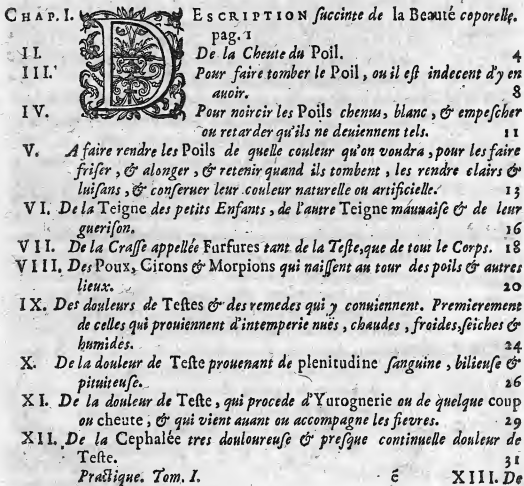 CHAP. I. DESCRIPTION succinte de la Beauté coporelle.
pag. 1
II. De la Cheute du Poil. 4
III. Pour faire tomber le Poil, ou il est indecent d'y en
auoir. 8
IV. Pour noircir les Poils chenus, blanc, & empescher
ou retarder qu'ils ne deuiennent tels. 11
V. A faire rendre les Poils de quelle couleur qu'on voudra, pour les faire
friser, & alonger, & retenir quand ils tombent, les rendre clairs &
luisans, & conseruer leur couleur naturelle ou artificielle. 13
VI. De la Teigne des petits Enfants, de l'autre Teigne máuuaise & de leur
guerison. 16
VII. De la Crasse appellée Furfures tant de la Teste, que de tout le Corps. 18
VIII. Des Poux, Cirons & Morpions qui naissent au tour des poils & autres
lieux. 20
IX. Des douleurs de Testes & des remedes qui y conuiennent. Premierement
de celles qui prouiennent d'intemperie nuës, chaudes, froides, seiches &
humides. 24
X. De la douleur de Teste prouenant de plenitudine sanguine, bilieuse &
pituiteuse. 26
XI. De la douleur de Teste, qui procede d'Yurognerie ou de quelque coup
ou cheute, & qui vient auant ou accompagne les fievres. 29
XII. De la Cephalée tres douloureuse & presque continuelle douleur de
Teste. 31
Practique. Tom. I. é XIII. De